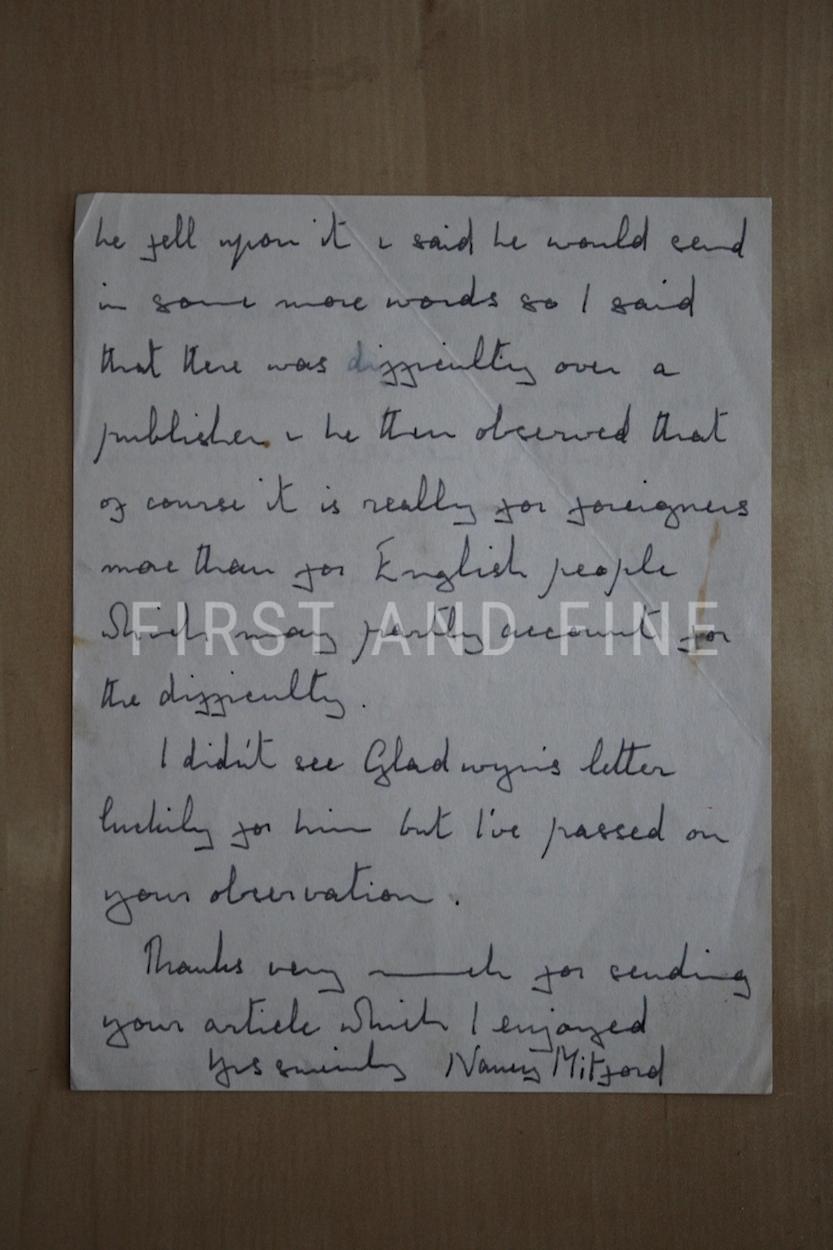 he fell upon it & said he would send
in some more words so I said
that there was difficulty over a
publisher & he then observed that
of course it is really for foreigners
more than for English people
FIRST AND FINE
which may partly account for
the difficulty.
I didn't see Gladwyn's letter
luckily for him but I've passed on
your observation.
Thanks very much for sending
your article which I enjoyed
Yrs sincerely Nancy Mitford